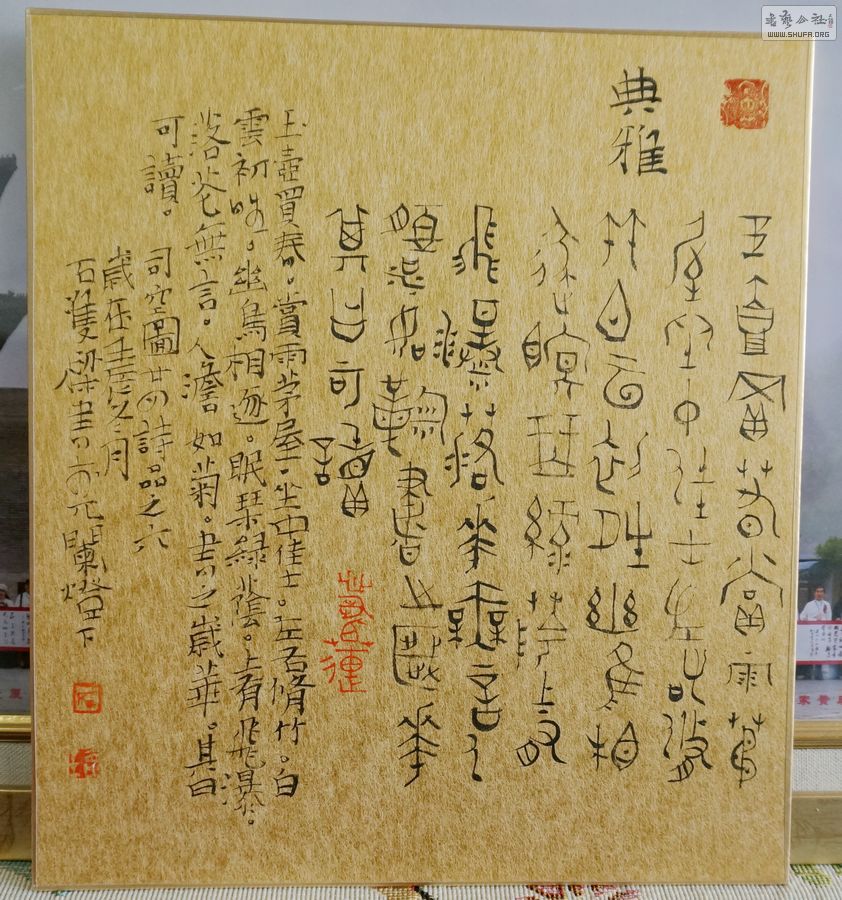 书艺公社
WWW.SHUFA.ORG
典雅
玉壺買春賞雨茅
屋坐中佳士左右脩
竹白雲初晴幽鳥相
逐眠琴綠陰上有
飛瀑落華無言人
澹如菊書之歲華
其曰可讀
玉壺買春。賞雨茅屋。坐中佳士。左右脩竹。白
雲初晴。幽鳥相逐。眠琴綠蔭。上有飛瀑。
落花無言。人澹如菊。書之歲華。其曰
可讀。
司空圖廿四詩品之六
歲在壬寅冬月
石書燈下